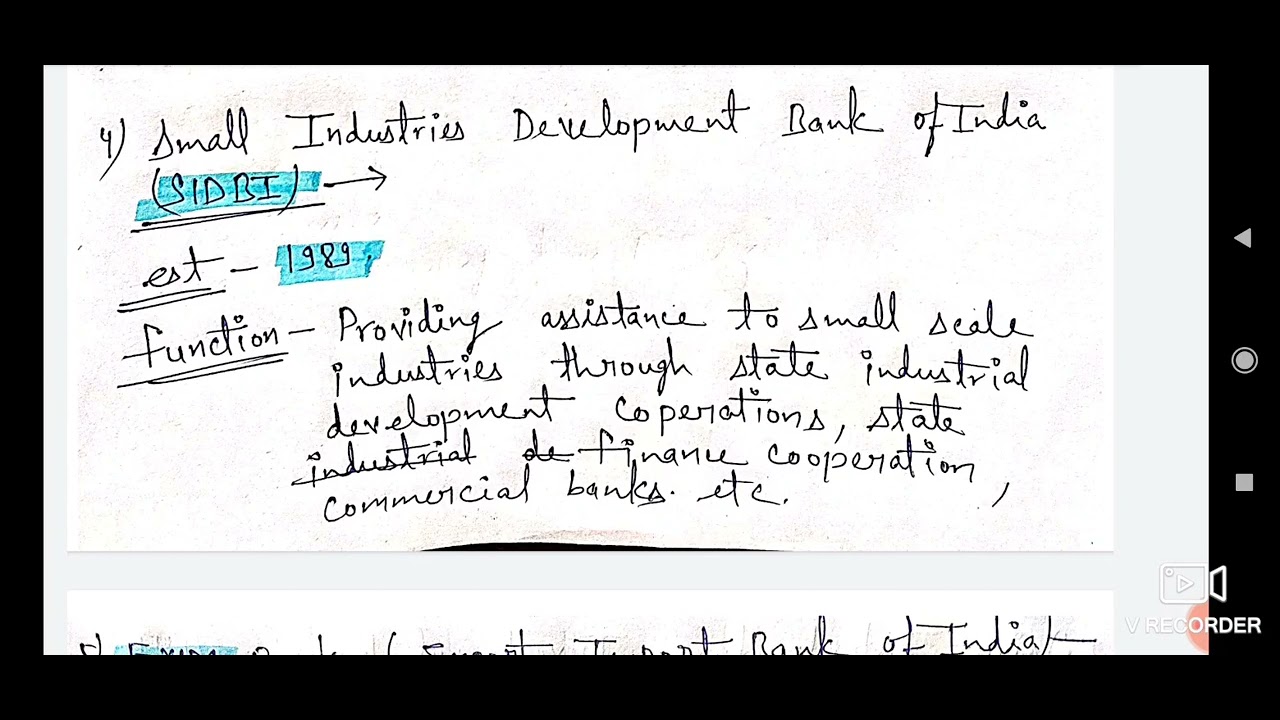 4) Small Industries Development Bank of India
(SIDBI) →
est - 1989.
function - Providing assistance to small scale
industries through state industrial
development coperations, state
industrial de finance cooperation,
commercial banks. etc.
Bank of India) -
V RECORDER